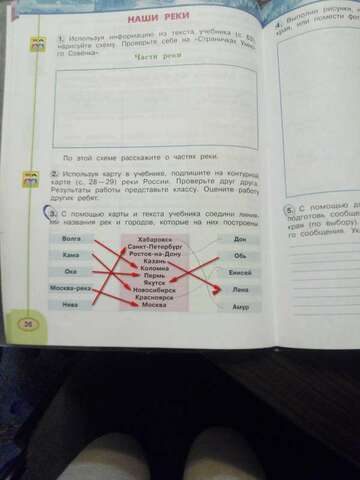 НАШИ РЕКИ
1. Используя информацию из текста учебника (с. 63),
нарисуйте схему. Проверьте себя на «Страничках Умно-
го Совёнка».
Части реки
По этой схеме расскажите о частях реки.
2. Используя карту в учебнике, подпишите на контурной
карте (с. 28—29) реки России. Проверьте друг друга.
Результаты работы представьте классу. Оцените работу
других ребят.
3. С помощью карты и текста учебника соедини линия-
ми названия рек и городов, которые на них построены
Волга
Кама
Ока
Москва-река
Нева
Хабаровск
Санкт-Петербург
Ростов-на-Дону
Казань
Коломна
Пермь
Якутск
Новосибирск
Красноярск
Москва
Дон
Обь
Енисей
Лена
Амур
36
4. Выполни рисунки,
края, или помести
5. С помощью
подготовь сообще
края (по выбору).
го сообщения.